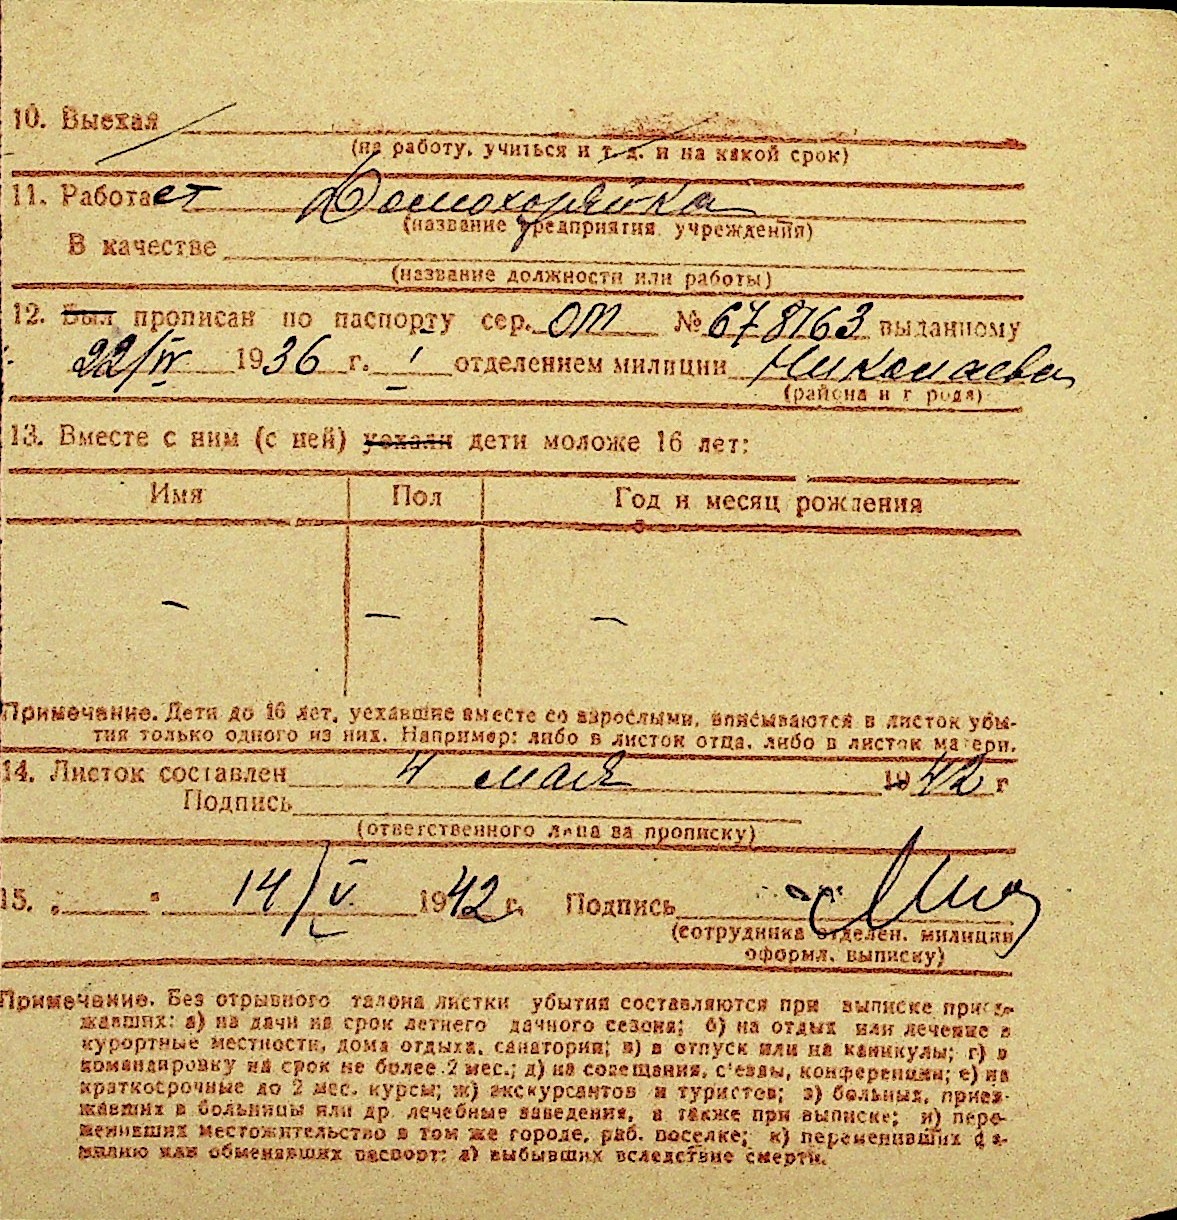 10. Выехал
(на работу, учиться и т. д. и на какой срок)
11. Работает Домохозяйка
(название предприятия, учреждения)
В качестве
(название должности или работы)
12. Был прописан по паспорту сер. ОП № 678163 выданному
22/IV 1936 г. 1 отделением милиции Николаева
(района и города)
13. Вместе с ним (с ней) уехали дети моложе 16 лет:
Имя Пол Год и месяц рождения
— — —
Примечание. Дети до 16 лет, уехавшие вместе со взрослыми, вписываются в листок убы-
тия только одного из них. Например: либо в листок отца, либо в листок матери.
14. Листок составлен 4 мая 1942 г
Подпись
(ответственного лица за прописку)
15. „ “ 14/V. 1942 г. Подпись
(сотрудника отделен. милиции
оформл. выписку)
Примечание. Без отрывного талона листки убытия составляются при выписке приез-
жавших: а) на дачи на срок летнего дачного сезона; б) на отдых или лечение в
курортные местности, дома отдыха, санатории; в) в отпуск или на каникулы; г) в
командировку на срок не более 2 мес.; д) на совещания, с'езды, конференции; е) на
краткосрочные до 2 мес. курсы; ж) экскурсантов и туристов; з) больных, приез-
жавших в больницы или др. лечебные заведения, а также при выписке; и) пере-
менивших местожительство в том же городе, раб. поселке; к) переменивших фа-
милию или обменявших паспорт; л) выбывших вследствие смерти.